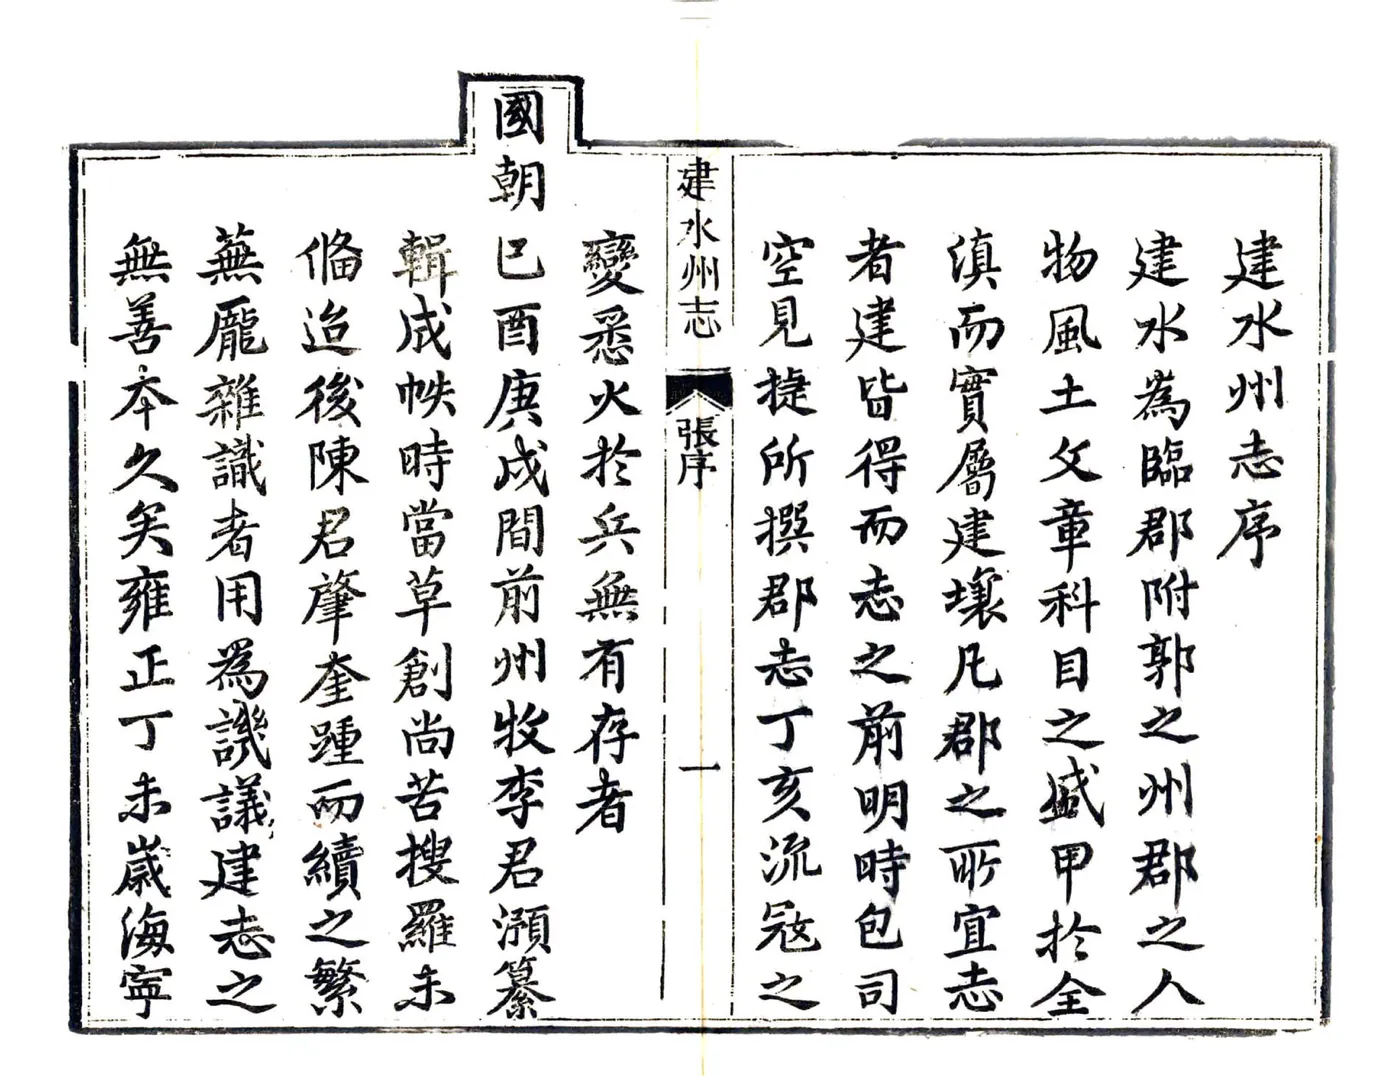 建水州志序
建水為臨郡附郭之州郡之人
物風土文章科目之盛甲於全
滇而實層建壤凡郡之所宜志
者建皆得而志之前明時包司
空見捷所撰郡志丁亥流冦之
建水州志 張序 一
變悉火於兵無有存者
國朝已酉庚戍間前州牧李君灝纂
輯成帙時當草創尚苦搜羅未
備迨後陳君肇奎踵而續之繁
蕪龎雜識者用為譏議建志之
無善本久矣雍正丁未歲海寧